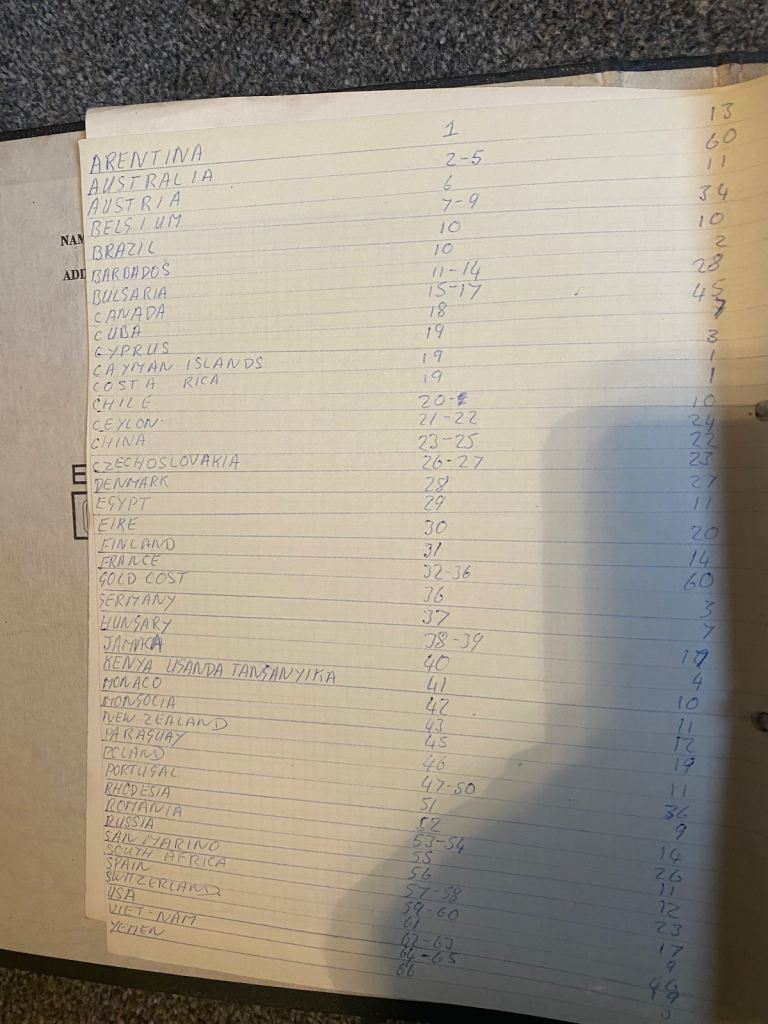 ARENTINA 1 13
AUSTRALIA 2-5 60
AUSTRIA 6 11
BELGIUM 7-9 34
BRAZIL 10 10
BARBADOS 10 2
BULGARIA 11-14 28
CANADA 15-17 45
CUBA 18 7
CYPRUS 19 3
CAYMAN ISLANDS 19 1
COSTA RICA 19 1
CHILE 20- 10
CEYLON. 21-22 24
CHINA 23-25 22
CZECHOSLOVAKIA 26-27 23
DENMARK 28 27
EGYPT 29 11
EIRE 30 20
FINLAND 31 14
FRANCE 32-36 60
GOLD COST 36 3
GERMANY 37 7
HUNGARY 38-39 17
JAMACA 40 4
KENYA UGANDA TANGANYIKA 41 10
MONACO 42 11
MONGOLIA 43 12
NEW ZEALAND 45 19
PARAGUAY 46 11
POLAND 47-50 36
PORTUGAL 51 9
RHODESIA 52 14
ROMANIA 53-54 26
RUSSIA 55 11
SAN MARINO 56 12
SOUTH AFRICA 57-58 23
SPAIN 59-60 17
SWITZERLAND 61 9
USA 62-63 46
VIET-NAM 64-65 19
YEMEN 66
NAM
ADD